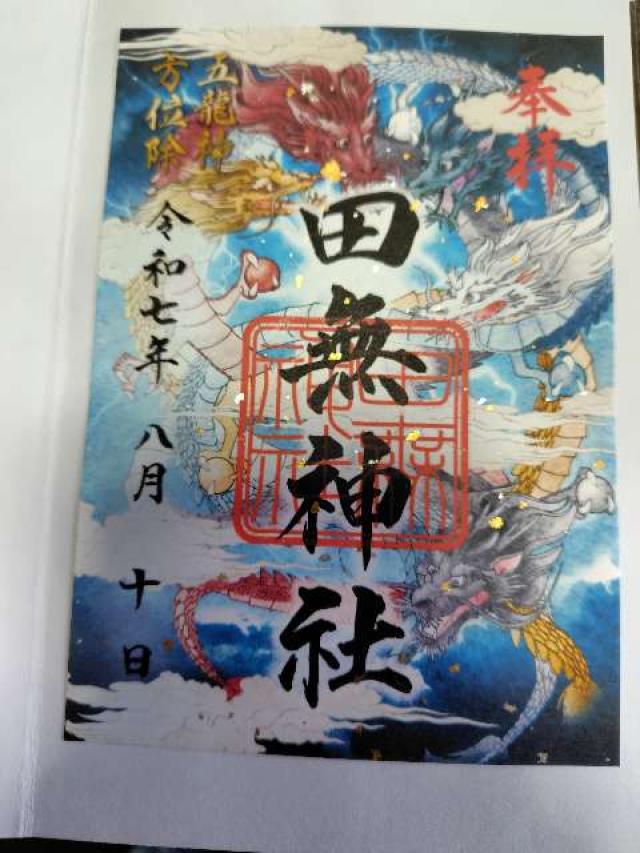 奉拝
田無神社
五龍神
方位除
令和七年 八月 十日
田無神社